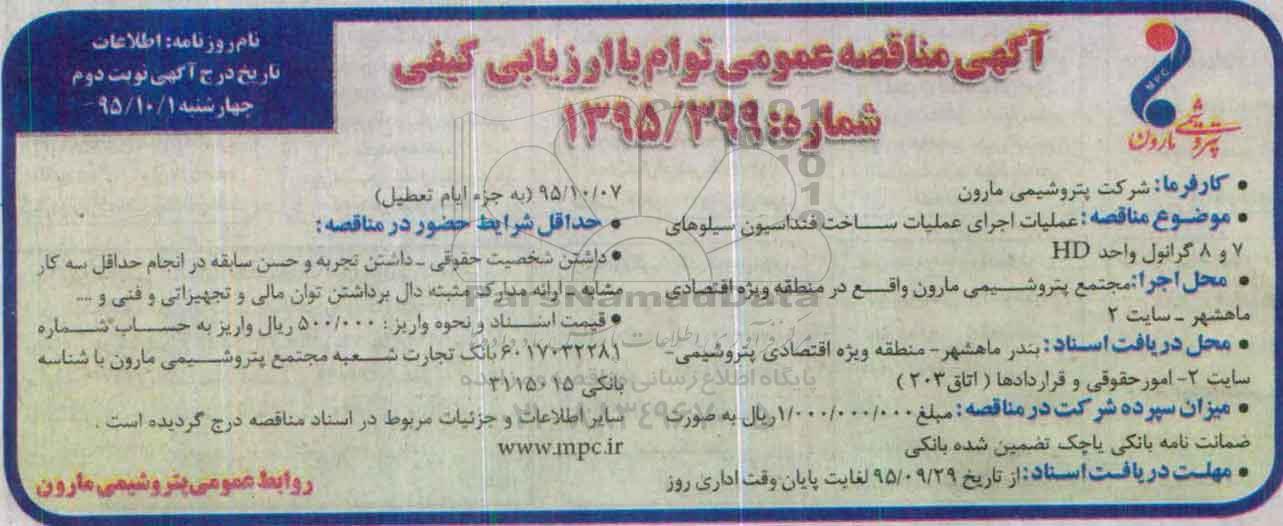 نام روزنامه: اطلاعات
تاریخ درج آگهی نوبت دوم
چهارشنبه ۹۵/۱۰/۱
آگهی مناقصه عمومی توام با ارزیابی کیفی
شماره: ۱۳۹۵/۳۹۹
MPC
پتروشیمی مارون
• کارفرما: شرکت پتروشیمی مارون
• موضوع مناقصه: عملیات اجرای عملیات ساخت فنداسیون سیلوهای
۷ و ۸ گرانول واحد HD
• محل اجرا: مجتمع پتروشیمی مارون واقع در منطقه ویژه اقتصادی
ماهشهر ـ سایت ۲
• محل دریافت اسناد: بندر ماهشهر- منطقه ویژه اقتصادی پتروشیمی-
سایت ۲- امور حقوقی و قراردادها ( اتاق ۲۰۳ )
• میزان سپرده شرکت در مناقصه: مبلغ ۱/۰۰۰/۰۰۰/۰۰۰ ریال به صورت
ضمانت نامه بانکی یا چک تضمین شده بانکی
• مهلت دریافت اسناد: از تاریخ ۹۵/۰۹/۲۹ لغایت پایان وقت اداری روز
۹۵/۱۰/۰۷ (به جزء ایام تعطیل)
• حداقل شرایط حضور در مناقصه:
• داشتن شخصیت حقوقی ـ داشتن تجربه و حسن سابقه در انجام حداقل سه کار
مشابه ـ ارائه مدارک مثبته دال برداشتن توان مالی و تجهیزاتی و فنی و ....
• قیمت اسناد و نحوه واریز : ۵۰۰/۰۰۰ ریال واریز به حساب شماره
۶۰۱۷۰۳۲۲۸۱ بانک تجارت شعبه مجتمع پتروشیمی مارون با شناسه
بانکی ۳۱۱۵۰۱۵
سایر اطلاعات و جزئیات مربوط در اسناد مناقصه درج گردیده است .
www.mpc.ir
روابط عمومی پتروشیمی مارون
ParsNamadData